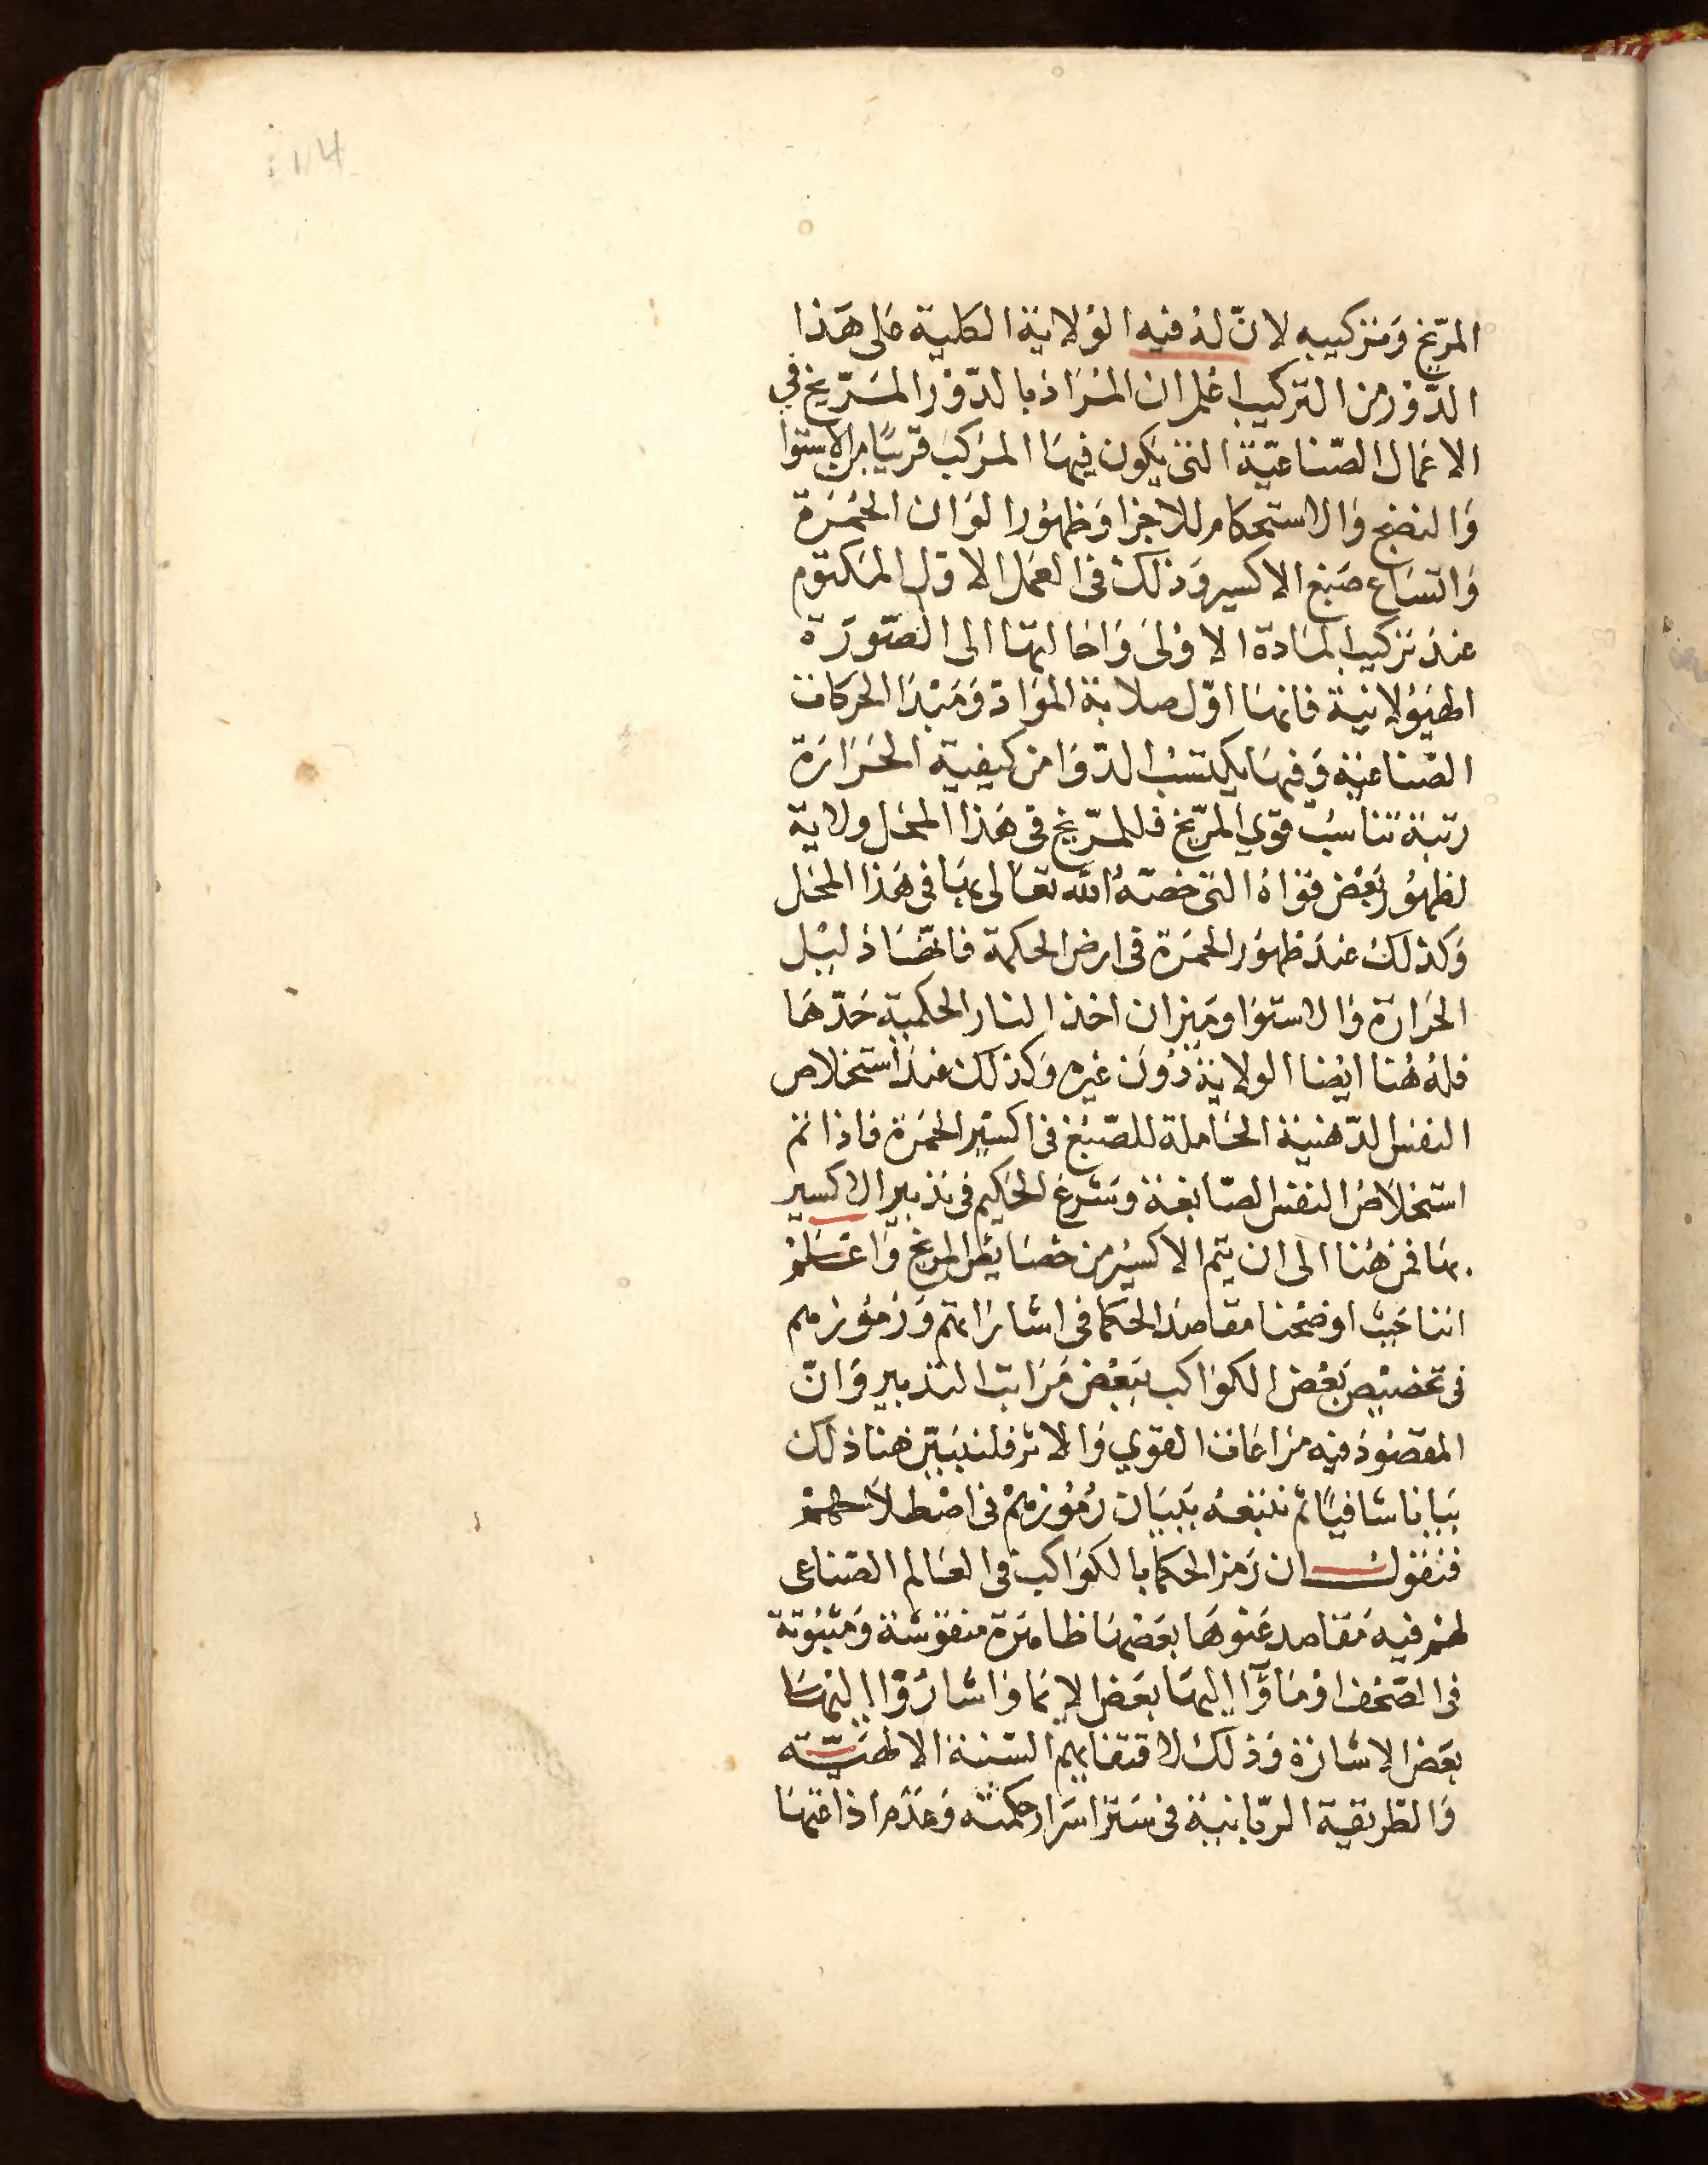 114
المرّيخ وَمتزكيبه لانّ لهُ فيه الوْلاية الكلية عَلى هَذا
الدَّوْر من التركيب اعْلم ان المُرَاد بالدّوْر المَرّيخ في
الاعمال الصّناعيّة التى يَكون فيهَا المرَكب قريبًا من الاستوا
وَالنضج وَالاستحكام للاجزا وَظهوُر الوَان الحُمْرَة
وَاتسَاع صَبغ الاكسير وَذلك فى العَمَل الاوّل المَكتوم
عندَ تركيب المَادة الاوْلى وَاحَالتهَا الى الصّورَة
الهيَوُلانية فانهَا اوّل صلابة الموَادّ وَمَبْدَا الحركات
الصّناعيّة وَفيهَا يكتسبُ الدّوَا من كيفية الحَرَارَة
رتبة تناسُب قوَي المرّيخ فللمرّيخ فى هَذا المحَل ولاية
لظهوُر بَعْض قوَاهُ التى خصّهُ الله تعَالى بهَا فى هَذا المحَل
وَكذلكَ عندَ ظهوُر الحمَرة فى ارض الحكمة فانهَا دَليْل
الحرَارَة وَالاستوَا وميَزان اخذ النار الحكمية حَدّهَا
فلهُ هُنا ايْضا الولاية دُوَن غيْره وَكذلك عندَ استخلاص
النفس الدّهنية الحاملة للصّبْغ فى اكسيْر الحمرَة فاذا تم
استخلاصُ النفس الصّابغة وَشرعَ الحكيم فى تدبير الاكسير
بهَا فمن هُنا الى ان يتم الاكسيْر من خصَايص المريخ وَاعْلم
اننا حَيْث اوضحْنا مقاصدَ الحكما فى اشارَاتهم وَرمُوزهم
فى تخصيْص بَعْض الكوَاكب ببَعْض مَرَاتب التدبير وَانّ
المقصُود فيه مرَاعات القوَي وَالاثر فلنبَيّن هنا ذلك
بيَانا شافيًا ثم نتبَعهُ ببَيَان رُمُوْزهمْ فى اصْطلاحهمْ
فنقول ان رَمز الحكما بالكوَاكب فى العَالم الصّناعى
لهُم فيه مَقاصد عَنوهَا بعَضهَا ظاهرَة منقوْشة وَمثبُوتة
فى الصّحف اوْمَاوْا اليهَا بعَض الايمَا وَاشارُوْا اليْهَا
بعَض الاشارَة وَذلك لاقتفايهم السّنة الالهيّة
وَالطّريقة الرّبانية فى سَتر اسَرار حكمته وَعَدَم اذاعتهَا